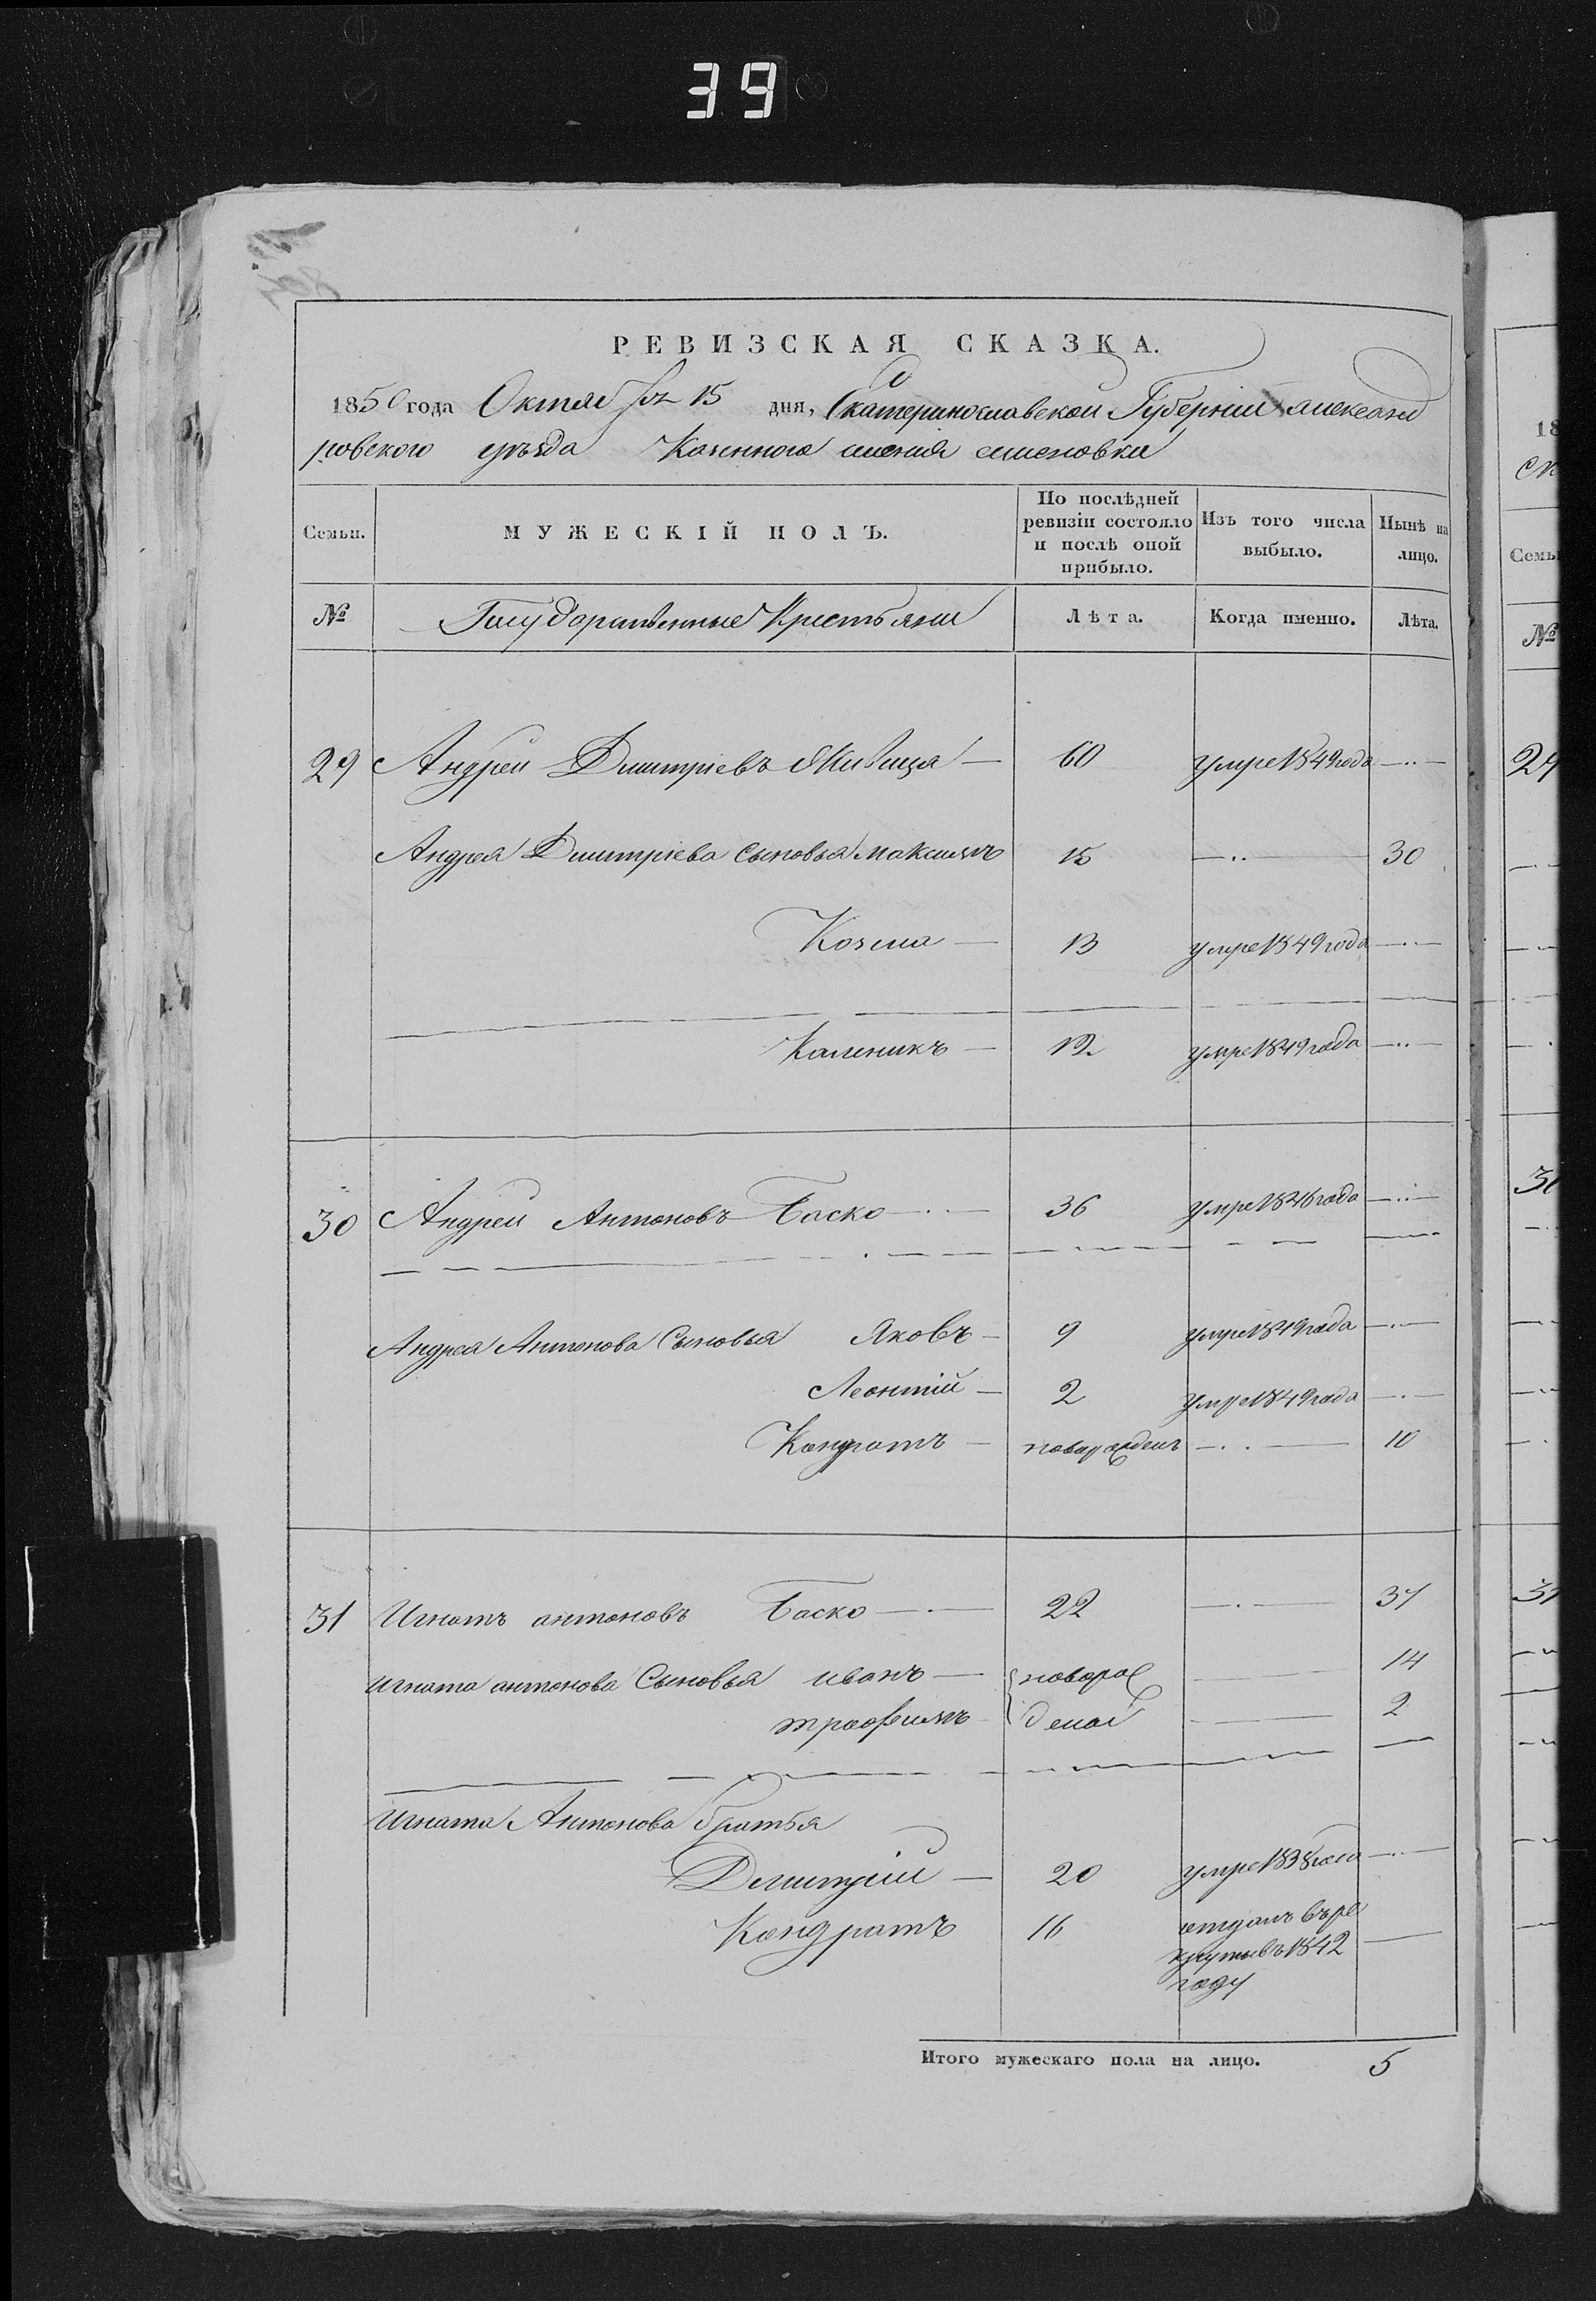 39
РЕВИЗСКАЯ СКАЗКА.
1850 года Октября 15 дня, Екатеринославской Губерніи александ
ровского уѣзда Казенного имения
Семьи. МУЖЕСКІЙ ПОЛЪ. По послѣдней ревизіи состояло и послѣ оной прибыло. Изъ того числа выбыло. Нынѣ на лицо.
№ Государственные Крестьяни Лѣта. Когда именно. Лѣта.
29 Андрей Дмитріевъ 60 умре 1849 года
Андрея Дмитріева сыновья максимъ 15 30
Козма 13 умре 1849 года
Калиникъ 12 умре 1849 года
30 Андрей Антоновъ Баско 36 умре 1846 года
Андрея Антонова Сыновья Яковъ 9 умре 1849 года
Леонтій 2 умре 1849 года
Кондратъ 10
31 Игнатъ антоновъ Баско 22 37
Игната антонова Сыновья иванъ новоро 14
трофимъ 2
Игната Антонова братья
Дмитрій 20 умре 1838 года
Кондратъ 16 отданъ въ ре
круты въ 1842
году
Итого мужескаго пола на лицо. 5
18
Семьи
№
29
30
31